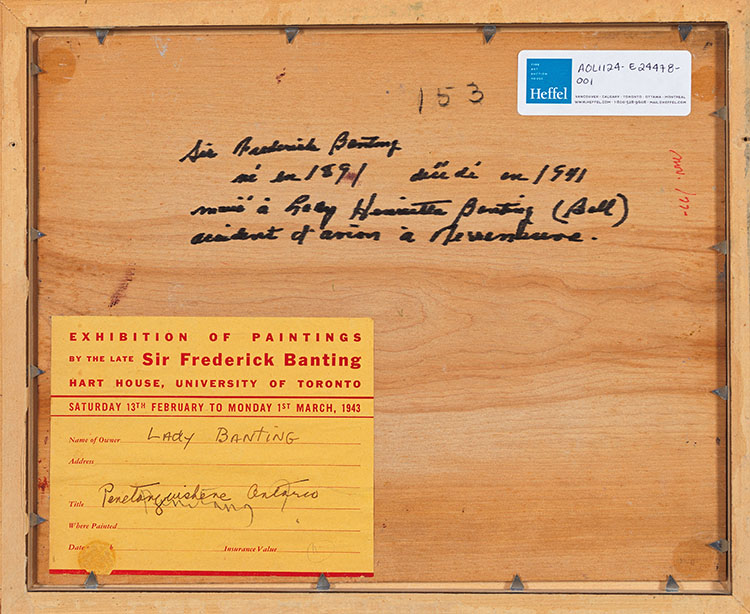 153
FINE
ART
AUCTION
HOUSE
Heffel
AOL1124-E24478-
001
VANCOUVER • CALGARY • TORONTO • OTTAWA • MONTREAL
WWW.HEFFEL.COM • 1 800 528-9608 • MAIL@HEFFEL.COM
Sir Frederick Banting
né en 1891 décédé en 1941
marié à Lady Henrietta Banting (Ball)
accident d'avion à Terreneuve.
EXHIBITION OF PAINTINGS
BY THE LATE Sir Frederick Banting
HART HOUSE, UNIVERSITY OF TORONTO
SATURDAY 13TH FEBRUARY TO MONDAY 1ST MARCH, 1943
Name of Owner LADY BANTING
Address
Title Penetanguishene Ontario
Where Painted
Date Insurance Value